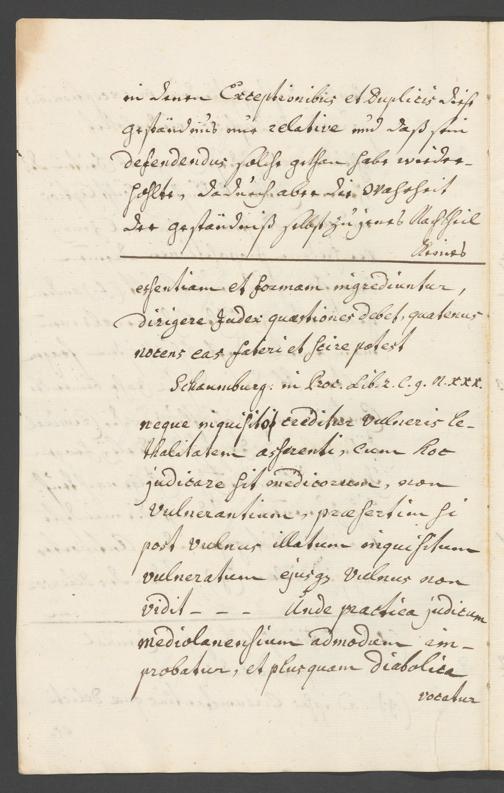 in denen Exceptionibus et Duplicis diese
geständnis nur relative und daß sein
defendendus solche gethan habe wieder-
hohlte, dadurch aber die Wahrheit
der geständniß selbst zu jenes Nachtheil
Keines
essentiam et formam ingrediuntur,
dirigere Judex quaestiones debet, quatenus
nocens eas fateri et scire potest
Schaumburg: in Proc. Lib. 2. C. 9. N. XXX.
neque inquisito creditur vulneris le-
thalitatem asserenti, cum hoc
judicare sit medicorum, non
vulnerantium, praesertim si
post vulnus illatum inquisitum
vulneratum ejusq; vulnus non
vidit - - - Unde practica judicum
mediolanensium admodum im-
probatur, et plusquam diabolica
vocatur